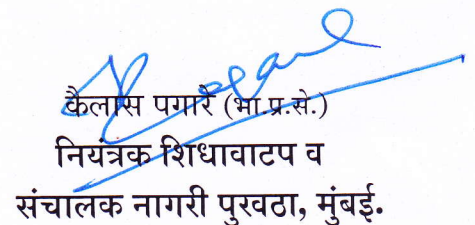 कैलास पगारे (भा.प्र.से.)
नियंत्रक शिधावाटप व
संचालक नागरी पुरवठा, मुंबई.